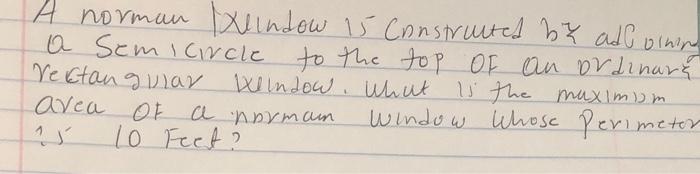 A norman window is constructed by adjoining
a semicircle to the top OF an ordinary
rectangular window. what is the maximum
area OF a norman window whose perimeter
is 10 Feet?